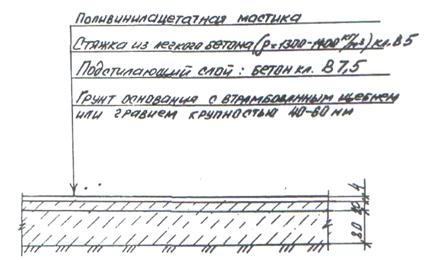 Поливинилацетатная мастика
Стяжка из легкого бетона (ρ=1300-1400 кг/м³) кл. В5
Подстилающий слой: бетон кл. В 7,5
Грунт основания с втрамбованным щебнем
или гравием крупностью 40-60 мм
4
20
80